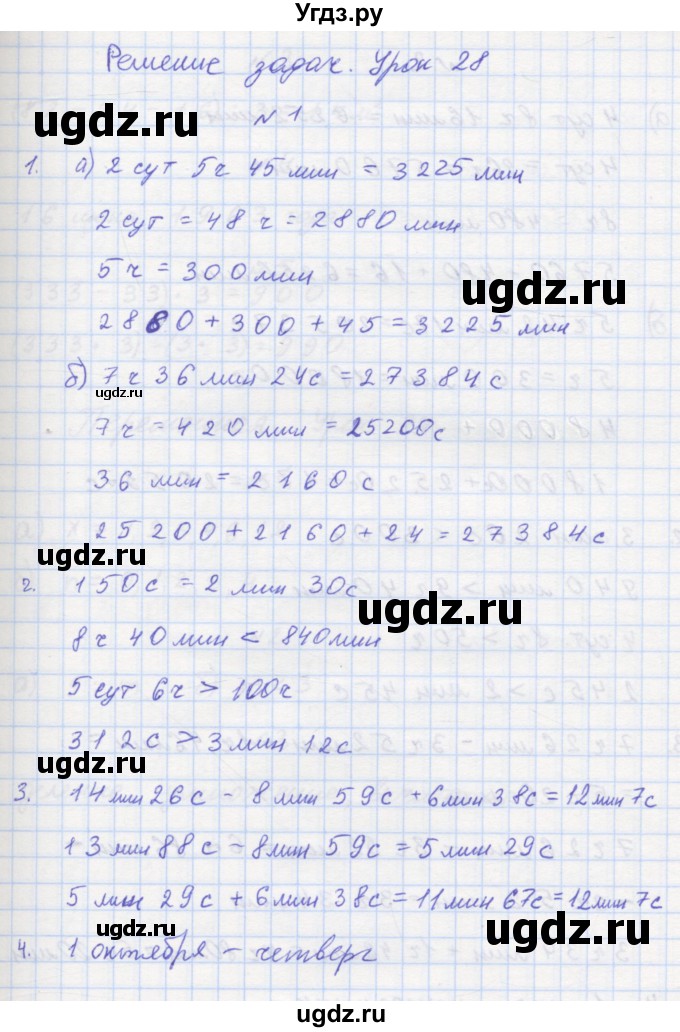 Угдз.ру
Решение задач. Урок 28
ugdz.ru
ugdz.ru
№ 1
1. а) 2 сут 5 ч 45 мин = 3225 мин
2 сут = 48 ч = 2880 мин
5 ч = 300 мин
ugdz.ru
2880 + 300 + 45 = 3225 мин
б) 7 ч 36 мин 24 с = 27384 с
ugdz.ru
7 ч = 420 мин = 25200 с
36 мин = 2160 с
25200 + 2160 + 24 = 27384 с
ugdz.ru
2. 150 с = 2 мин 30 с
ugdz.ru
8 ч 40 мин < 840 мин
5 сут 6 ч > 100 ч
312 с > 3 мин 12 с
ugdz.ru
3. 14 мин 26 с - 8 мин 59 с + 6 мин 38 с = 12 мин 7 с
13 мин 88 с - 8 мин 59 с = 5 мин 29 с
5 мин 29 с + 6 мин 38 с = 11 мин 67 с = 12 мин 7 с
ugdz.ru
ugdz.ru
4. 1 октября - четверг
ugdz.ru